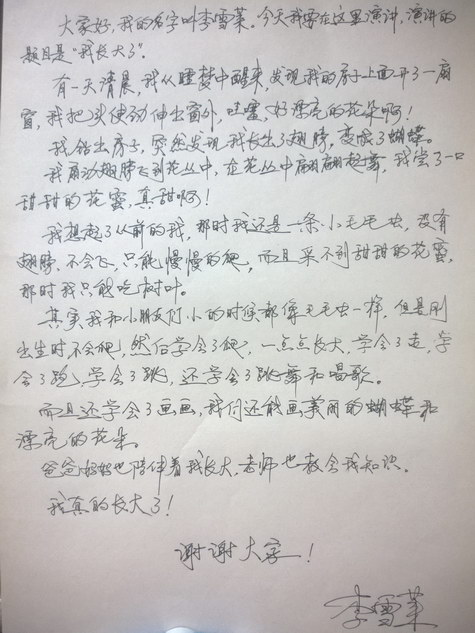 大家好,我的名字叫李雪莱。今天我要在这里演讲,演讲的
题目是“我长大了”。
有一天清晨,我从睡梦中醒来,发现我的房子上面开了一扇
窗,我把头使劲伸出窗外,哇塞,好漂亮的花朵啊!
我钻出房子,突然发现我长出了翅膀,变成了蝴蝶。
我扇动翅膀飞到花丛中,在花丛中翩翩起舞,我尝了一口
甜甜的花蜜,真甜啊!
我想起了从前的我,那时我还是一条小毛毛虫,没有
翅膀,不会飞,只能慢慢的爬,而且采不到甜甜的花蜜,
那时我只能吃树叶。
其实我和小朋友们小的时候都像毛毛虫一样,但是刚
出生时不会爬,然后学会了爬,一点点长大,学会了走,学
会了跑,学会了跳,还学会了跳舞和唱歌。
而且还学会了画画,我们还能画美丽的蝴蝶和
漂亮的花朵。
爸爸妈妈也陪伴着我长大,老师也教会我知识。
我真的长大了!
谢谢大家!
李雪莱